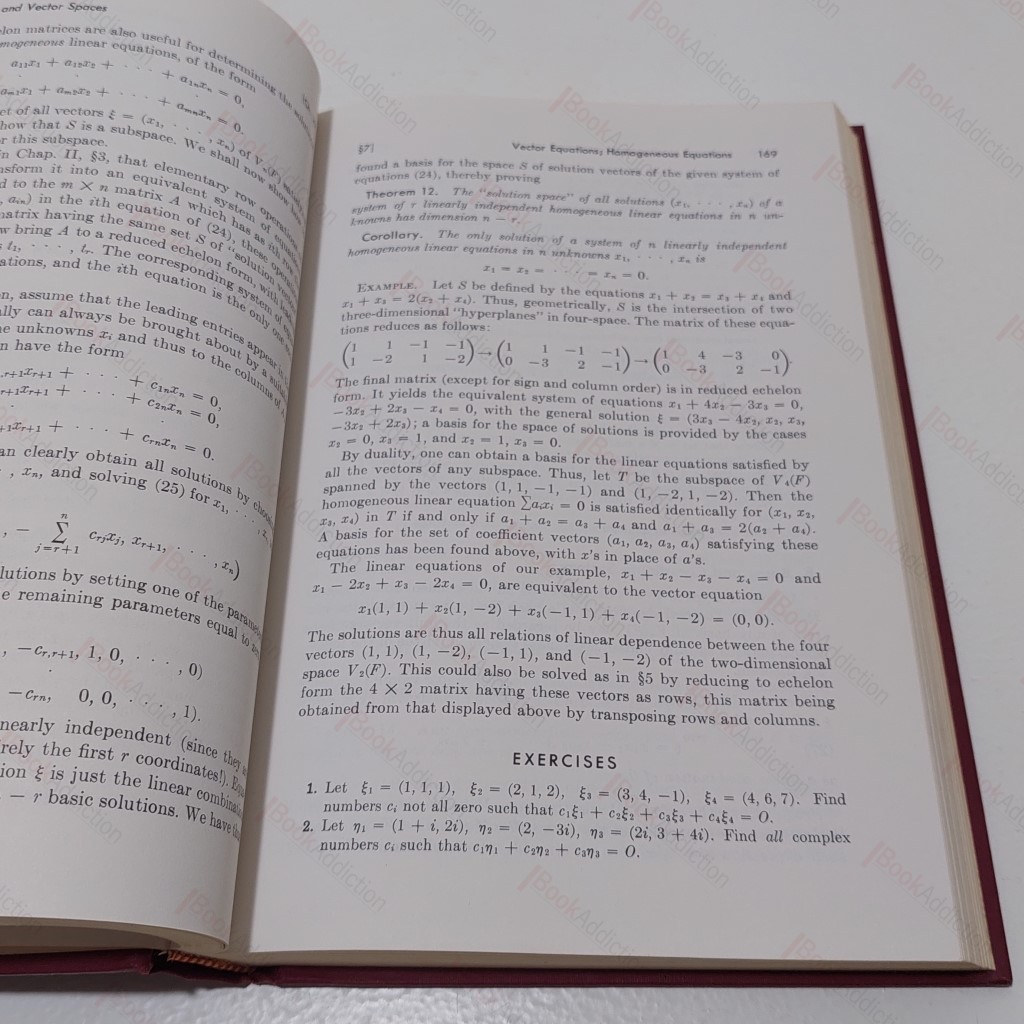 and Vector Spaces
lon matrices are also useful for determining the
mogeneous linear equations, of the form
a₁₁x₁ + a₁₂x₂ + · · · + a₁ₙxₙ = 0,
aₘ₁x₁ + aₘ₂x₂ + · · · + aₘₙxₙ = 0.
et of all vectors ξ = (x₁, · · · , xₙ) of
how that S is a subspace. We shall now show
r this subspace.
n Chap. II, §3, that elementary row
nsform it into an equivalent system
d to the m × n matrix A which has as
in the ith equation of (24), these
atrix having the same set S of solution
w bring A to a reduced echelon form, with
t₁, · · · , tᵣ. The corresponding system
ations, and the ith equation is the only one
n, assume that the leading entries appear in
lly can always be brought about by a
e unknowns xᵢ and thus to the columns of
n have the form
r+1xᵣ₊₁ + · · · + c₁ₙxₙ = 0,
r+1xᵣ₊₁ + · · · + c₂ₙxₙ = 0,
+1xᵣ₊₁ + · · · + cᵣₙxₙ = 0.
an clearly obtain all solutions by
, xₙ, and solving (25) for x₁, · · ·
, − Σⁿⱼ₌ᵣ₊₁ cᵣⱼxⱼ, xᵣ₊₁, · · · , xₙ)
lutions by setting one of the
e remaining parameters equal to
, −cᵣ,ᵣ₊₁, 1, 0, · · · , 0)
−cᵣₙ, 0, 0, · · · , 1).
nearly independent (since they
rely the first r coordinates!).
ion ξ is just the linear
− r basic solutions. We have
§7] Vector Equations; Homogeneous Equations 169
found a basis for the space S of solution vectors of the given system of
equations (24), thereby proving
Theorem 12. The "solution space" of all solutions (x₁, · · · , xₙ) of a
system of r linearly independent homogeneous linear equations in n un-
knowns has dimension n − r.
Corollary. The only solution of a system of n linearly independent
homogeneous linear equations in n unknowns x₁, · · · , xₙ is
x₁ = x₂ = · · · = xₙ = 0.
EXAMPLE. Let S be defined by the equations x₁ + x₂ = x₃ + x₄ and
x₁ + x₃ = 2(x₂ + x₄). Thus, geometrically, S is the intersection of two
three-dimensional "hyperplanes" in four-space. The matrix of these equa-
tions reduces as follows:
(1 1 −1 −1) → (1 1 −1 −1) → (1 4 −3 0)
(1 −2 1 −2) (0 −3 2 −1) (0 −3 2 −1).
The final matrix (except for sign and column order) is in reduced echelon
form. It yields the equivalent system of equations x₁ + 4x₂ − 3x₃ = 0,
−3x₂ + 2x₃ − x₄ = 0, with the general solution ξ = (3x₃ − 4x₂, x₂, x₃,
−3x₂ + 2x₃); a basis for the space of solutions is provided by the cases
x₂ = 0, x₃ = 1, and x₂ = 1, x₃ = 0.
By duality, one can obtain a basis for the linear equations satisfied by
all the vectors of any subspace. Thus, let T be the subspace of V₄(F)
spanned by the vectors (1, 1, −1, −1) and (1, −2, 1, −2). Then the
homogeneous linear equation Σaᵢxᵢ = 0 is satisfied identically for (x₁, x₂,
x₃, x₄) in T if and only if a₁ + a₂ = a₃ + a₄ and a₁ + a₃ = 2(a₂ + a₄).
A basis for the set of coefficient vectors (a₁, a₂, a₃, a₄) satisfying these
equations has been found above, with x's in place of a's.
The linear equations of our example, x₁ + x₂ − x₃ − x₄ = 0 and
x₁ − 2x₂ + x₃ − 2x₄ = 0, are equivalent to the vector equation
x₁(1, 1) + x₂(1, −2) + x₃(−1, 1) + x₄(−1, −2) = (0, 0).
The solutions are thus all relations of linear dependence between the four
vectors (1, 1), (1, −2), (−1, 1), and (−1, −2) of the two-dimensional
space V₂(F). This could also be solved as in §5 by reducing to echelon
form the 4 × 2 matrix having these vectors as rows, this matrix being
obtained from that displayed above by transposing rows and columns.
EXERCISES
1. Let ξ₁ = (1, 1, 1), ξ₂ = (2, 1, 2), ξ₃ = (3, 4, −1), ξ₄ = (4, 6, 7). Find
numbers cᵢ not all zero such that c₁ξ₁ + c₂ξ₂ + c₃ξ₃ + c₄ξ₄ = O.
2. Let η₁ = (1 + i, 2i), η₂ = (2, −3i), η₃ = (2i, 3 + 4i). Find all complex
numbers cᵢ such that c₁η₁ + c₂η₂ + c₃η₃ = O.